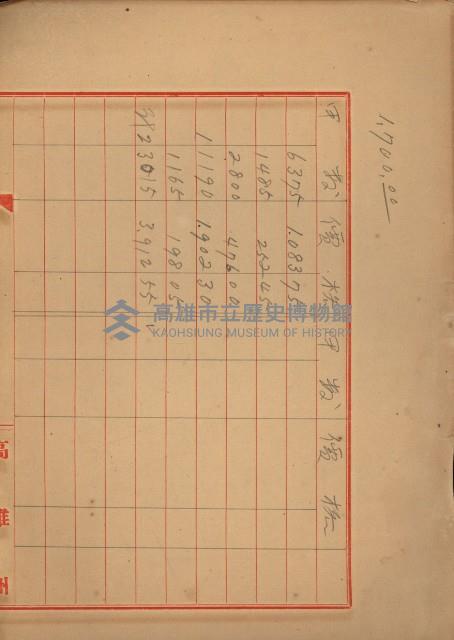 1,700.00
甲数 價格 甲数 價格
6375 1.083.75
1485 252.45
2800 476.00
11190 1.902.30
1165 198.05
23015 3.912.55
高雄州
高雄市立歷史博物館
KAOHSIUNG MUSEUM OF HISTORY